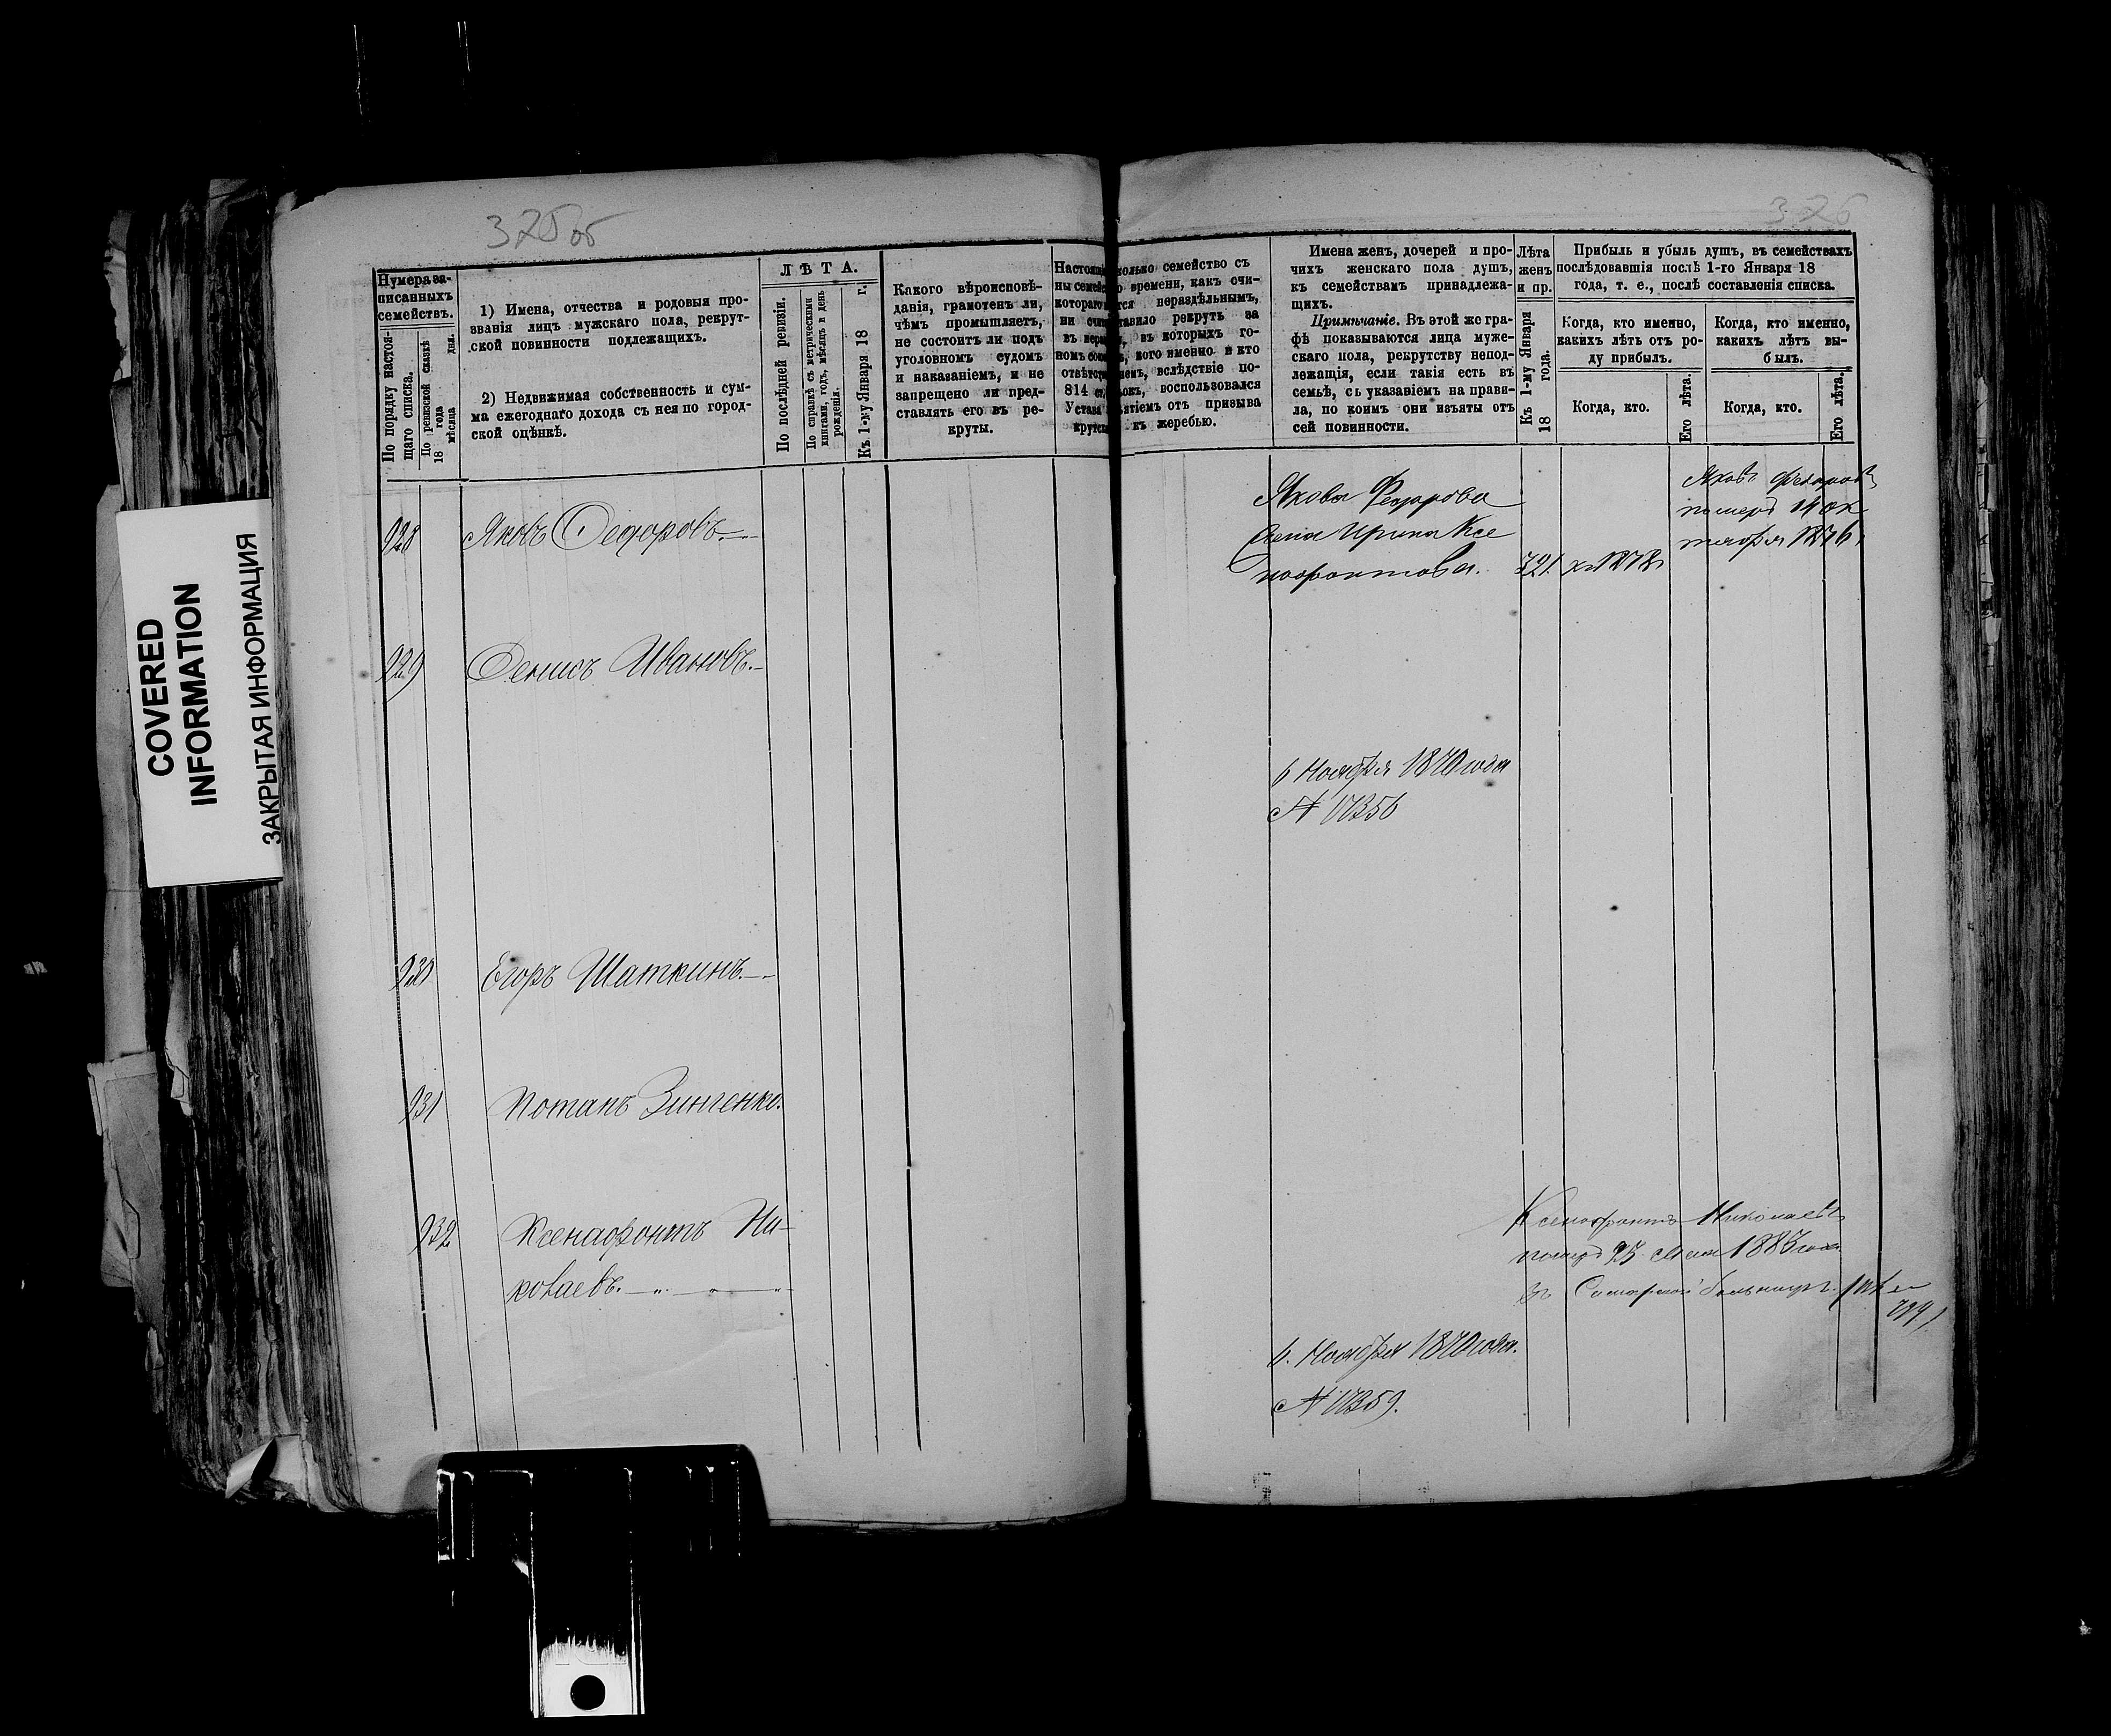 325 об
326
COVERED
INFORMATION
ЗАКРЫТАЯ ИНФОРМАЦИЯ
Нумера за-
писанныхъ
семействъ.
По порядку настоя-
щаго списка.
По ревизской сказкѣ
18 года
мѣсяца дня.
1) Имена, отчества и родовыя про-
званія лицъ мужскаго пола, рекрут-
ской повинности подлежащихъ.
2) Недвижимая собственность и сум-
ма ежегоднаго дохода съ нея по город-
ской оцѣнкѣ.
ЛѢТА.
По послѣдней ревизіи.
По справкѣ съ метрическими
книгами, годъ, мѣсяцъ и день
рожденія.
Къ 1-му Января 18 г.
Какого вѣроисповѣ-
данія, грамотенъ ли,
чѣмъ промышляетъ,
не состоитъ ли подъ
уголовномъ судомъ
и наказаніемъ, и не
запрещено ли пред-
ставлять его въ ре-
круты.
Настоящ
ны семей
котораго
ни счит
въ
номъ
отвѣтст
814 ст
Устава
колько семейство съ
о времени, какъ счи-
тся нераздѣльнымъ,
тавило рекрутъ за
въ которыхъ го-
кого именно и кто
вслѣдствіе по-
воспользовался
отъ призыва
къ жеребью.
Имена женъ, дочерей и про-
чихъ женскаго пола душъ,
къ семействамъ принадлежа-
щихъ.
Примѣчаніе. Въ этой же гра-
фѣ показываются лица муже-
скаго пола, рекрутству непод-
лежащія, если такія есть въ
семьѣ, съ указаніемъ на прави-
ла, по коимъ они изъяты отъ
сей повинности.
Лѣта
женъ
и пр.
Къ 1-му Января
18 года.
Прибыль и убыль душъ, въ семействахъ
послѣдовавшія послѣ 1-го Января 18
года, т. е., послѣ составленія списка.
Когда, кто именно,
какихъ лѣтъ отъ ро-
ду прибылъ.
Когда, кто именно,
какихъ лѣтъ вы-
былъ.
Когда, кто.
Его лѣта.
Когда, кто.
Его лѣта.
928 Яковъ Федоровъ.
Якова Федорова
жена Ирина Ксе
нофонтова.
Яковъ Федоровъ
померъ 14 ок
тября 1876
929 Денисъ Ивановъ.
6 Ноября 1870 года
№ 17356
930 Егоръ Шаткинъ.
931 Потапъ Зинченко.
932 Ксенафонтъ Ни-
колаевъ.
Ксенофонтъ Николаевъ
померъ 25 Мая 1885 года
въ Самарской больницѣ.
6. Ноября 1870 года.
№ 17359.